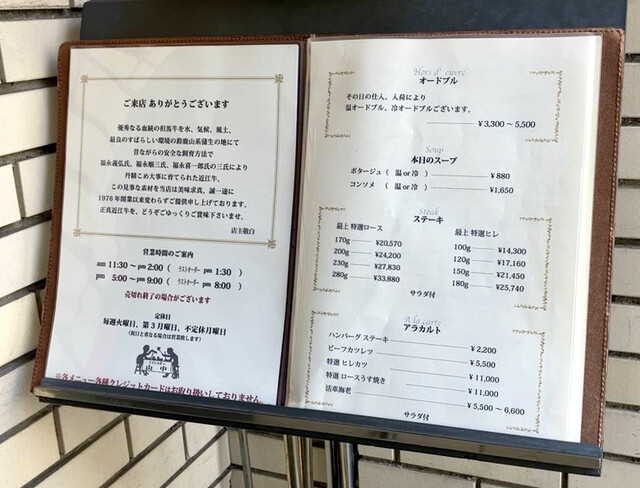 ご来店 ありがとうございます
優秀なる血統の但馬牛を水、気候、風土、
最良のすばらしい環境の鈴鹿山系蒲生の地にて
昔ながらの安全な飼育方法で
福永義弘氏、福永順三氏、福永喜一郎氏の三氏により
丹精こめ大事に育てられた近江牛。
この見事な素材を当店は美味求真、誠一途に
1976年開業以来変わらずご提供申し上げております。
正真近江牛を、どうぞごゆっくりご賞味下さいませ。
店主敬白
営業時間のご案内
am 11:30~pm 2:00 ( ラストオーダー pm 1:30 )
pm 5:00~pm 9:00 ( ラストオーダー pm 8:00 )
売切れ終了の場合がございます
定休日
毎週火曜日、第3月曜日、不定休月曜日
(祝日と重なる場合は営業致します)
山中
※各メニュー各種クレジットカードはお取り扱いしておりません。
Hors d' œuvre
オードブル
その日の仕入、入荷により
温オードブル、冷オードブルございます。
¥3,300~5,500
Soup
本日のスープ
ポタージュ ( 温 or 冷 ) ¥880
コンソメ ( 温 or 冷 ) ¥1,650
Steak
ステーキ
最上 特選ロース
170g ¥20,570
200g ¥24,200
230g ¥27,830
280g ¥33,880
最上 特選ヒレ
100g ¥14,300
120g ¥17,160
150g ¥21,450
180g ¥25,740
サラダ付
A la carte
アラカルト
ハンバーグ ステーキ ¥2,200
ビーフカツレツ ¥5,500
特選 ヒレカツ ¥11,000
特選 ロースうす焼き ¥11,000
活車海老 ¥5,500~6,600
サラダ付